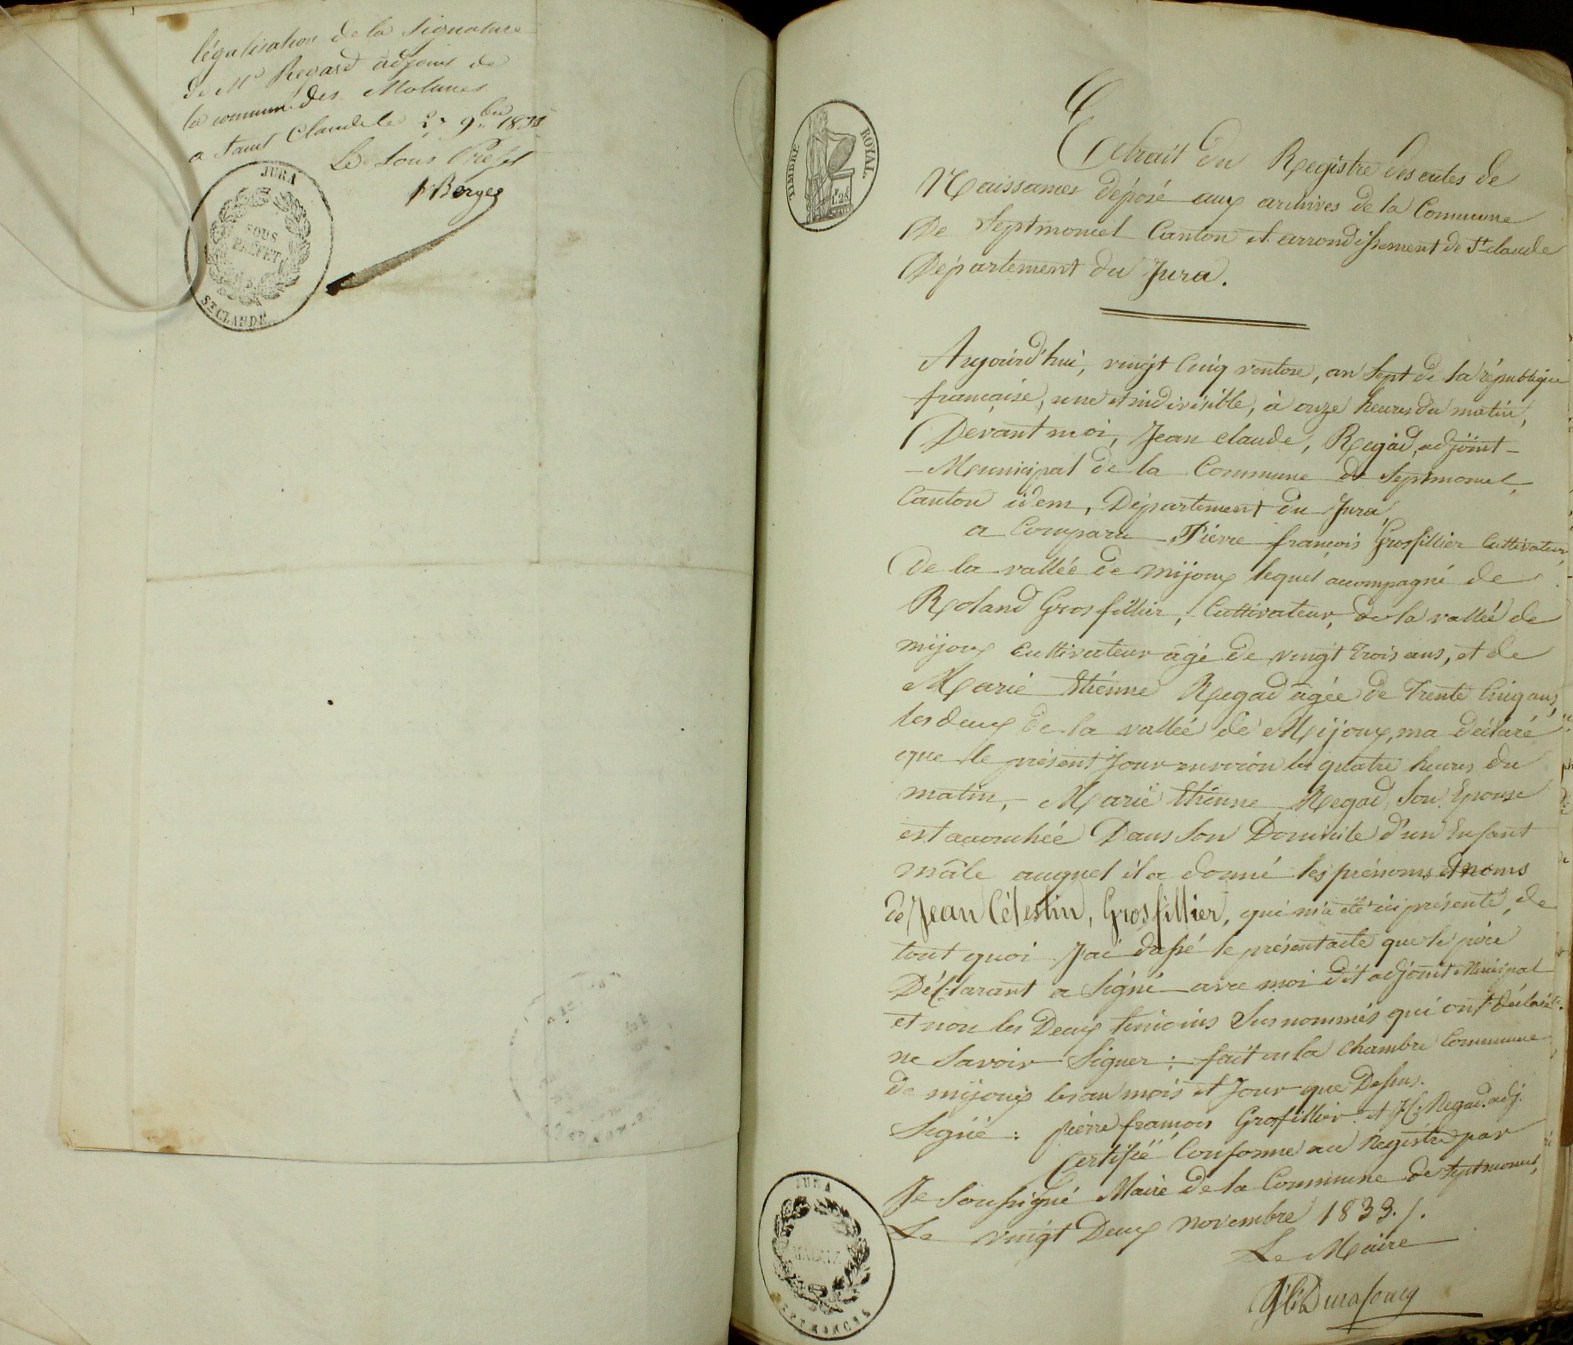 légalisation de la signature
de Mr Regard adjoint de
la commune des Molunes
a saint Claude le 27 9bre 1833
Le Sous Préfet
Berger
JURA
SOUS
PRÉFET
ST CLAUDE
TIMBRE ROYAL
1.25
Extrait du Registre des actes de
Naissances déposé aux archives de la Commune
De Septmoncel Canton et arrondissement de St Claude
Département du Jura.
Aujourd'hui, vingt cinq ventose, an sept de la république
française, une et indivisible, à onze heures du matin,
Devant moi, Jean Claude, Regad, adjoint
Municipal de la Commune de Septmoncel,
Canton idem, Département du Jura,
a Comparu Pierre françois Grosfillier Cultivateur
de la vallée de mijoux lequel accompagné de
Roland Grosfillier, Cultivateur, de la vallée de
mijoux Cultivateur âgé de vingt trois ans, et de
Marie Etienne Regad âgée de Trente Cinq ans,
les deux de la vallée de Mijoux, ma déclaré
que le présent Jour environ les quatre heures du
matin, Marie Etienne Regad, Son Epouse
est accouchée Dans Son Domicile d'un Enfant
mâle auquel il a donné les prénoms et noms
de Jean Célestin, Grosfillier, qui m'a été ici présenté, de
tout quoi J'ai dressé le présent acte que le père
Déclarant a signé avec moi dit adjoint Municipal
et non les Deux témoins Susnommés qui ont déclaré
ne Savoir Signer : fait en la chambre Commune
de mijoux les an mois et Jour que Dessus.
Signé : pierre françois Grosfillier et J. C. Regad. adj.
Certifié Conforme au Registre par
Je Soussigné Maire de la Commune de Septmoncel,
Le vingt Deux novembre 1833./.
Le Maire
JURA
MAIRIE
SEPTMONCEL